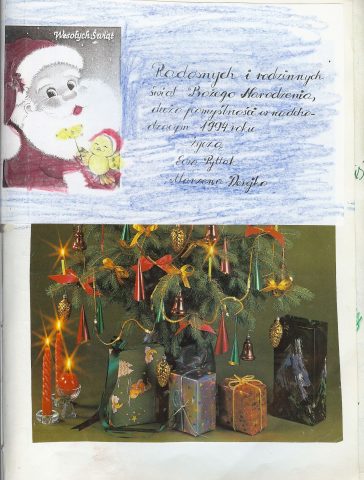 Wesołych Świąt
Radosnych i rodzinnych
świąt Bożego Narodzenia,
dużo pomyślności w nadcho-
dzącym 1994 roku
życzą
Ewa
Marzena